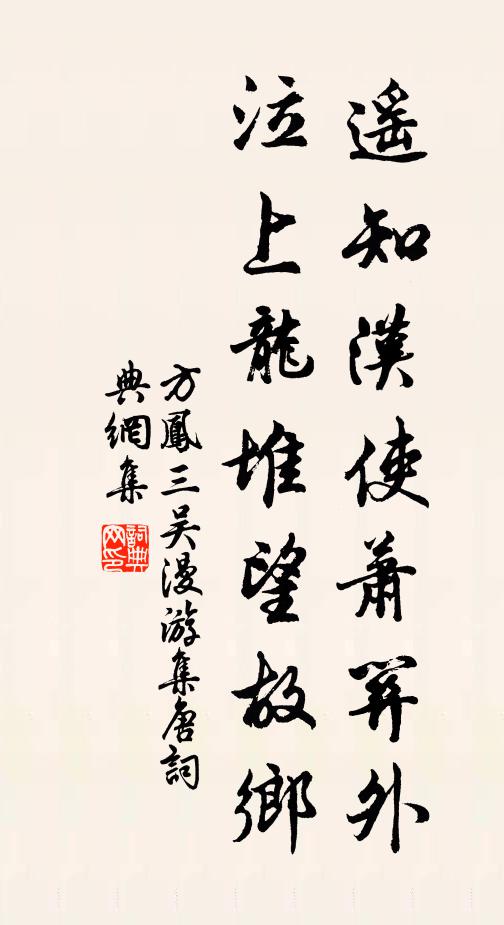 遥知漢使蕭關外
泣上龍堆望故鄉
方鳳三吴漫游集唐詞
典網集
詞典
网印